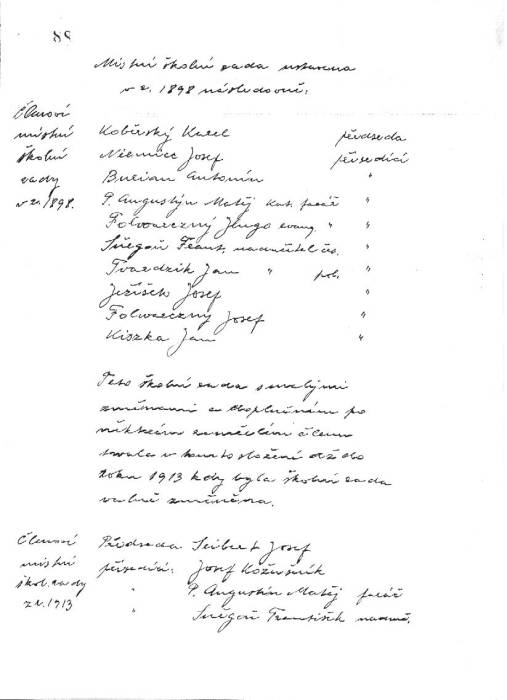 82
Místní školní rada ustavena
v r. 1898 následovně:
Členové
místní
školní
rady
v r. 1898.
Kobĕrský Karel předseda
Niemiec Josef přísedící
Burian Antonín "
P. Augustýn Matěj kat. farář "
Folwarczny Hugo evang. " "
Sněgoň Frant. nadučitel čes. "
Tvardzik Jan " pol. "
Jeřišek Josef "
Folwarczny Josef "
Kiszka Jan "
Tato školní rada s malými
změnami a doplněním po
někkém zemřelém členu
trvala v tomto složení až do
roku 1913 kdy byla školní rada
valně změněna.
Členové
místní
škol. rady
z r. 1913
Předseda Seibert Josef
přísedící: Josef Kožušník
" P. Augustin Matěj farář
" Sněgoň František naduč.